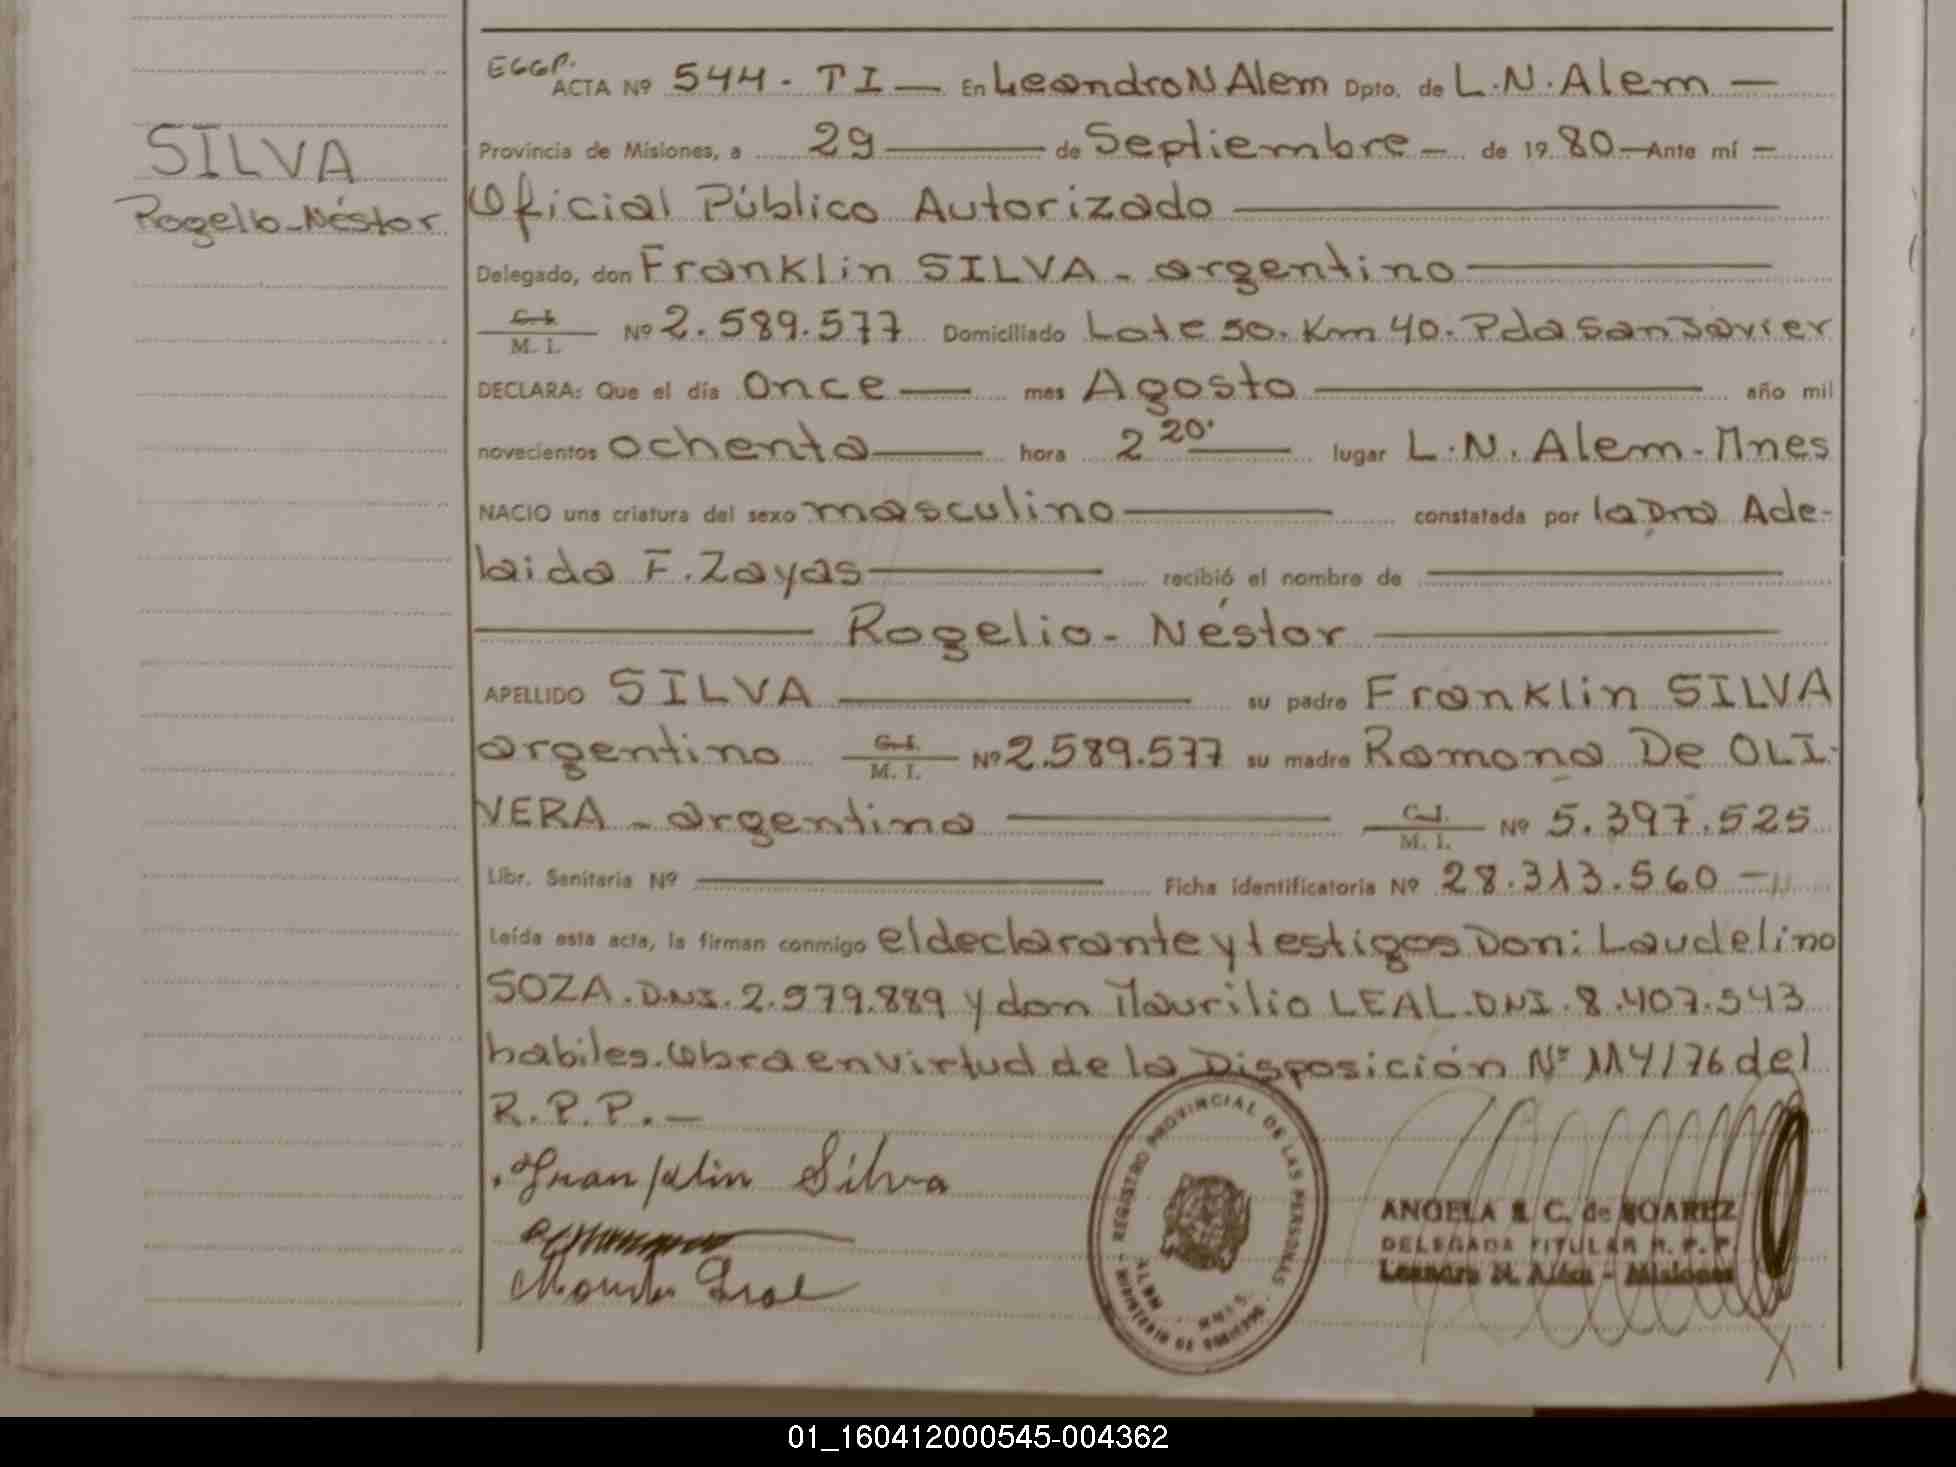 SILVA
Rogelio-Néstor
EGGP.
ACTA Nº 544 - TI — En Leandro N Alem Dpto. de L.N. Alem —
Provincia de Misiones, a 29 — de Septiembre — de 19 80 — Ante mí —
Oficial Público Autorizado —
Delegado, don Franklin SILVA - argentino —
C.I. / M. I. Nº 2.589.577 Domiciliado Lote 50. Km 40. Pda San Javier
DECLARA: Que el día Once — mes Agosto — año mil
novecientos ochenta — hora 2 20' — lugar L.N. Alem - Mnes
NACIO una criatura del sexo masculino — constatada por la Dra Ade-
laida F. Zayas — recibió el nombre de —
— Rogelio - Néstor —
APELLIDO SILVA — su padre Franklin SILVA
argentino C.I. / M. I. Nº 2.589.577 su madre Ramona De OLI-
VERA - argentina — C.I. / M. I. Nº 5.397.525
Libr. Sanitaria Nº — Ficha identificatoria Nº 28.313.560 —
Leída esta acta, la firman conmigo el declarante y testigos Don: Laudelino
SOZA. D.N.I. 2.979.889 y don Maurilio LEAL. DNI. 8.407.543
habiles. Obra en virtud de la Disposición Nº 114/76 del
R.P.P. —
Franklin Silva
REGISTRO PROVINCIAL DE LAS PERSONAS
MINISTERIO DE GOBIERNO
ALEM MNES.
ANGELA S. C. de SOAREZ
DELEGADA TITULAR R. P. P.
Leandro N. Alem - Misiones
01_160412000545-004362